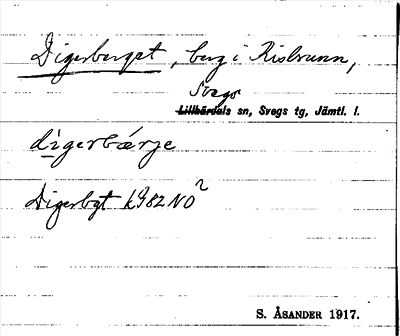 Digerberget, berg i Risbrunn,
Svegs
Lillhärdals sn, Svegs tg, Jämtl. l.
digerbærje
Digerbgt k982NO²
S. ÅSANDER 1917.